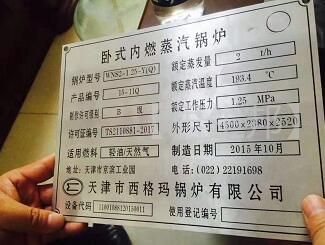 卧式内燃蒸汽锅炉
锅炉型号 WNS2-1.25-Y(Q) 额定蒸发量 2 t/h
产品编号 15-11Q 额定蒸汽温度 193.4 ℃
制造许可级别 B 级 额定工作压力 1.25 MPa
许可证编号 TS2110881-2017 外形尺寸 4500×2380×2520
适用燃料 轻油/天然气 制造日期 2015年10月
地址：天津市京滨工业园 电话：(022)22191698
天津市西格玛锅炉有限公司
设备代码 11001088120150011 使用登记编号